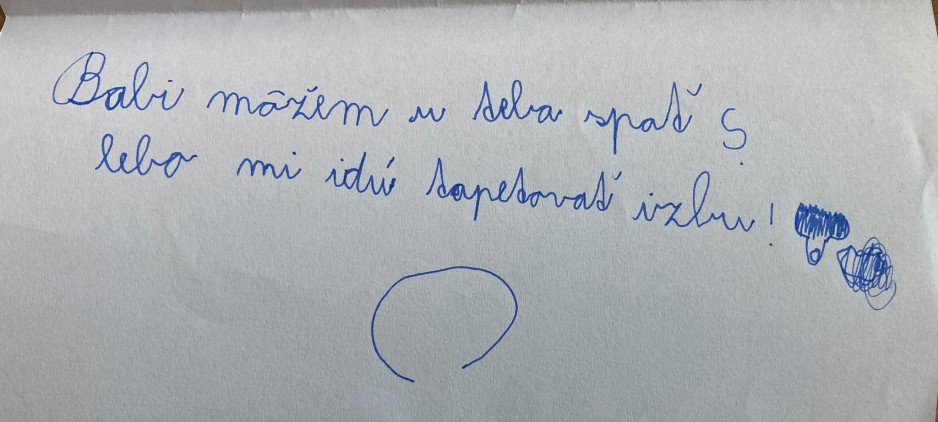 Babi môžem u teba spať ?
lebo mi idú tapetovať izbu!